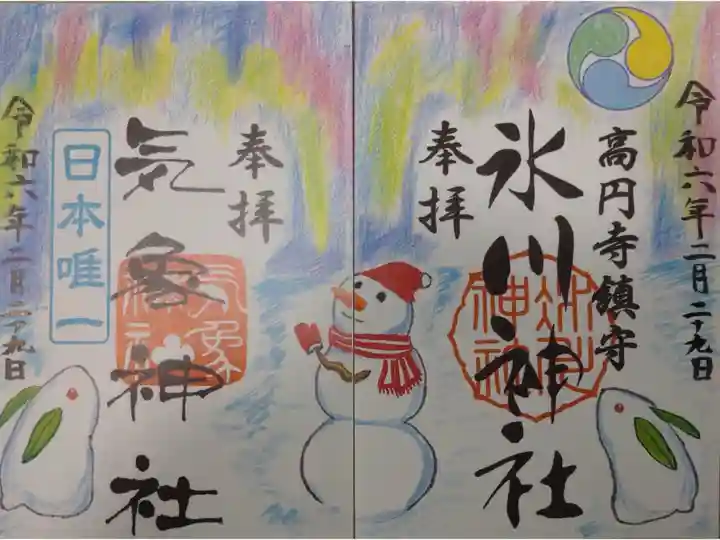 令和六年二月二十九日
高円寺鎮守
氷川神社
奉拝
奉拝
気象神社
日本唯一
令和六年二月二十九日